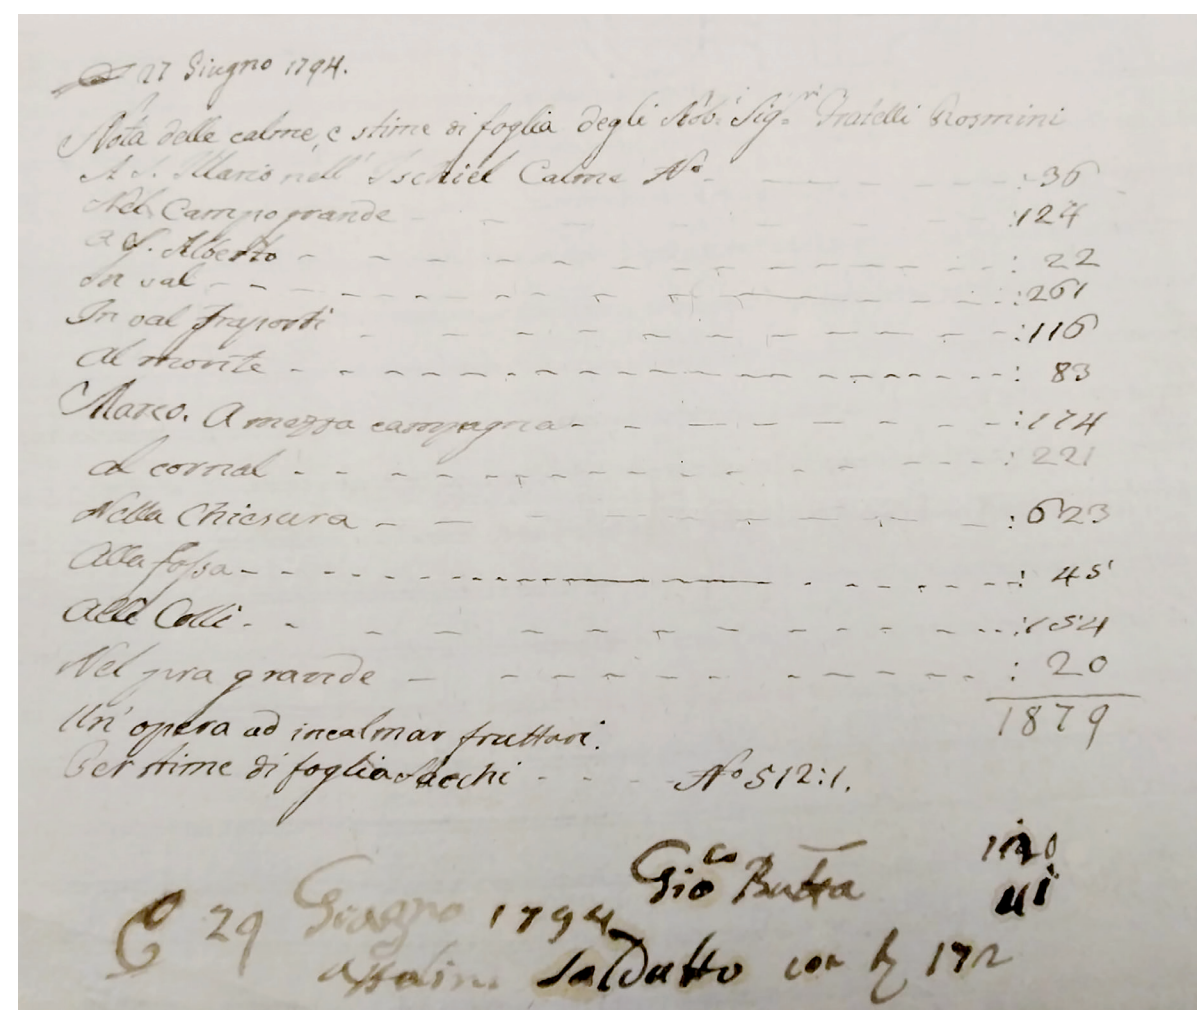 27 Giugno 1794.
Nota delle calme, e stime di foglia degli Nobi Sigri Fratelli Rosmini
A S. Illario nell' Ischiel Calme No : 36
Nel Campo grande : 124
a S. Alberto : 22
In val : 261
In val fraporti : 116
Al monte : 83
Marco. A mezza campagna : 174
al cornal : 221
Nella Chiesura : 623
Alla fossa : 45
Alle Colli : 154
Nel pra grande : 20
1879
Un' opera ad incalmar fruttari.
Per stime di foglia Sacchi No 512:1.
Gio Butta
29 Giugno 1794
Saldatto con 172